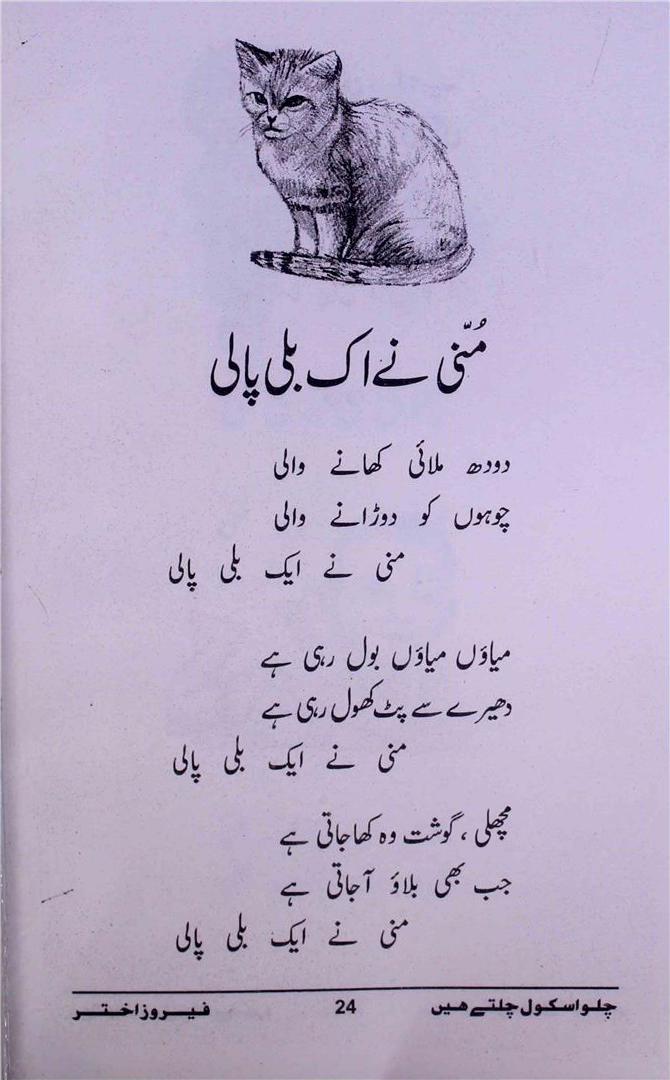 مُنّی نے اک بلی پالی
دودھ ملائی کھانے والی
چوہوں کو دوڑانے والی
منی نے ایک بلی پالی
میاؤں میاؤں بول رہی ہے
دھیرے سے پٹ کھول رہی ہے
منی نے ایک بلی پالی
مچھلی ، گوشت وہ کھا جاتی ہے
جب بھی بلاؤ آ جاتی ہے
منی نے ایک بلی پالی
چلو اسکول چلتے ھیں 24 فیروز اختر